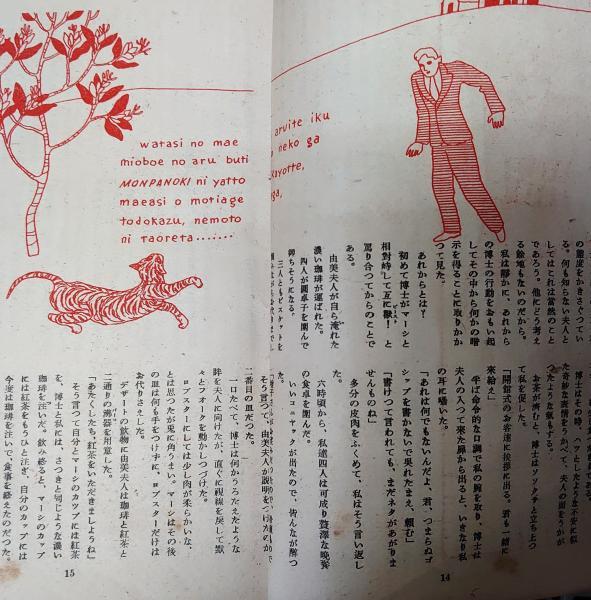 aruite iku
neko ga
kayotte,
ga,
の霊崖をかきさぐつてい
る。何も知らない夫人と
してはこれは当然のこと
であろう。他にどう考え
る餘地もないのだから。
私は静かに、あれから
の博士の行動をおもい起
してその中から何かの暗
示を得ることに取りかか
つて見た。
あれからとは？
初めて博士がマーシと
相對峙して互に獣！と
罵り合つてからのことで
ある。
由美夫人が自ら淹れた
濃い珈琲が運ばれた。
四人が圓卓子を囲んで
三人ともビスケットを
博士はその時、ハッとしたような不安に似
た奇妙な表情をうかべて、夫人の面をうかが
つたような気もする。
お茶が濟むと、博士はソソクサと立ち上つ
て私を促した。
「開館式のお客達に挨拶に出る。君も一緒に
来給え」
半ば命令的な口調で私の腕を取り、博士は
夫人の入つて来た扉から出ると、いきなり私
の耳に囁いた。
「あれは何でもないんだよ、君、つまらぬゴ
シップを書かないで呉れたまえ、頼む」
「書けつて言われても、まだネタがあがりま
せんものね」
多分の皮肉をふくめて、私はそう言い返し
た。
六時頃から、私達四人は可成り贅澤な晩餐
の食卓を囲んだ。
いいコニャックが出たので、皆んなが酔つ
14
watasi no mae
mioboe no aru buti
MONPANOKI ni yatto
maeasi o motiage
todokazu, nemoto
ni taoreta.......
そう言つて、由美夫人が説明をつけたのが
二番目の皿だつた。
一口たべて、博士は何かうろたえたような
眸を夫人に向けたが、直ぐに視線を戻して黙
々とフオークを動かしつづけた。
ロブスターにしては少し肉が柔らかいな、
とは思つたが兎に角うまい。マーシはその後
の皿は何も手をつけずに、ロブスターだけは
お代りさえした。
デザートの飲物に由美夫人は珈琲と紅茶と
二通りの沸器を用意した。
「あたくしたち、紅茶をいただきましようね」
そう言つて自分とマーシのカップには紅茶
を、博士と私には、さつきと同じような濃い
珈琲を注いだ。飲み終ると、マーシのカップ
には紅茶をもういと注ぎ、自分のカップには
今度は珈琲を注いで、食事を終えたのだつた。
15